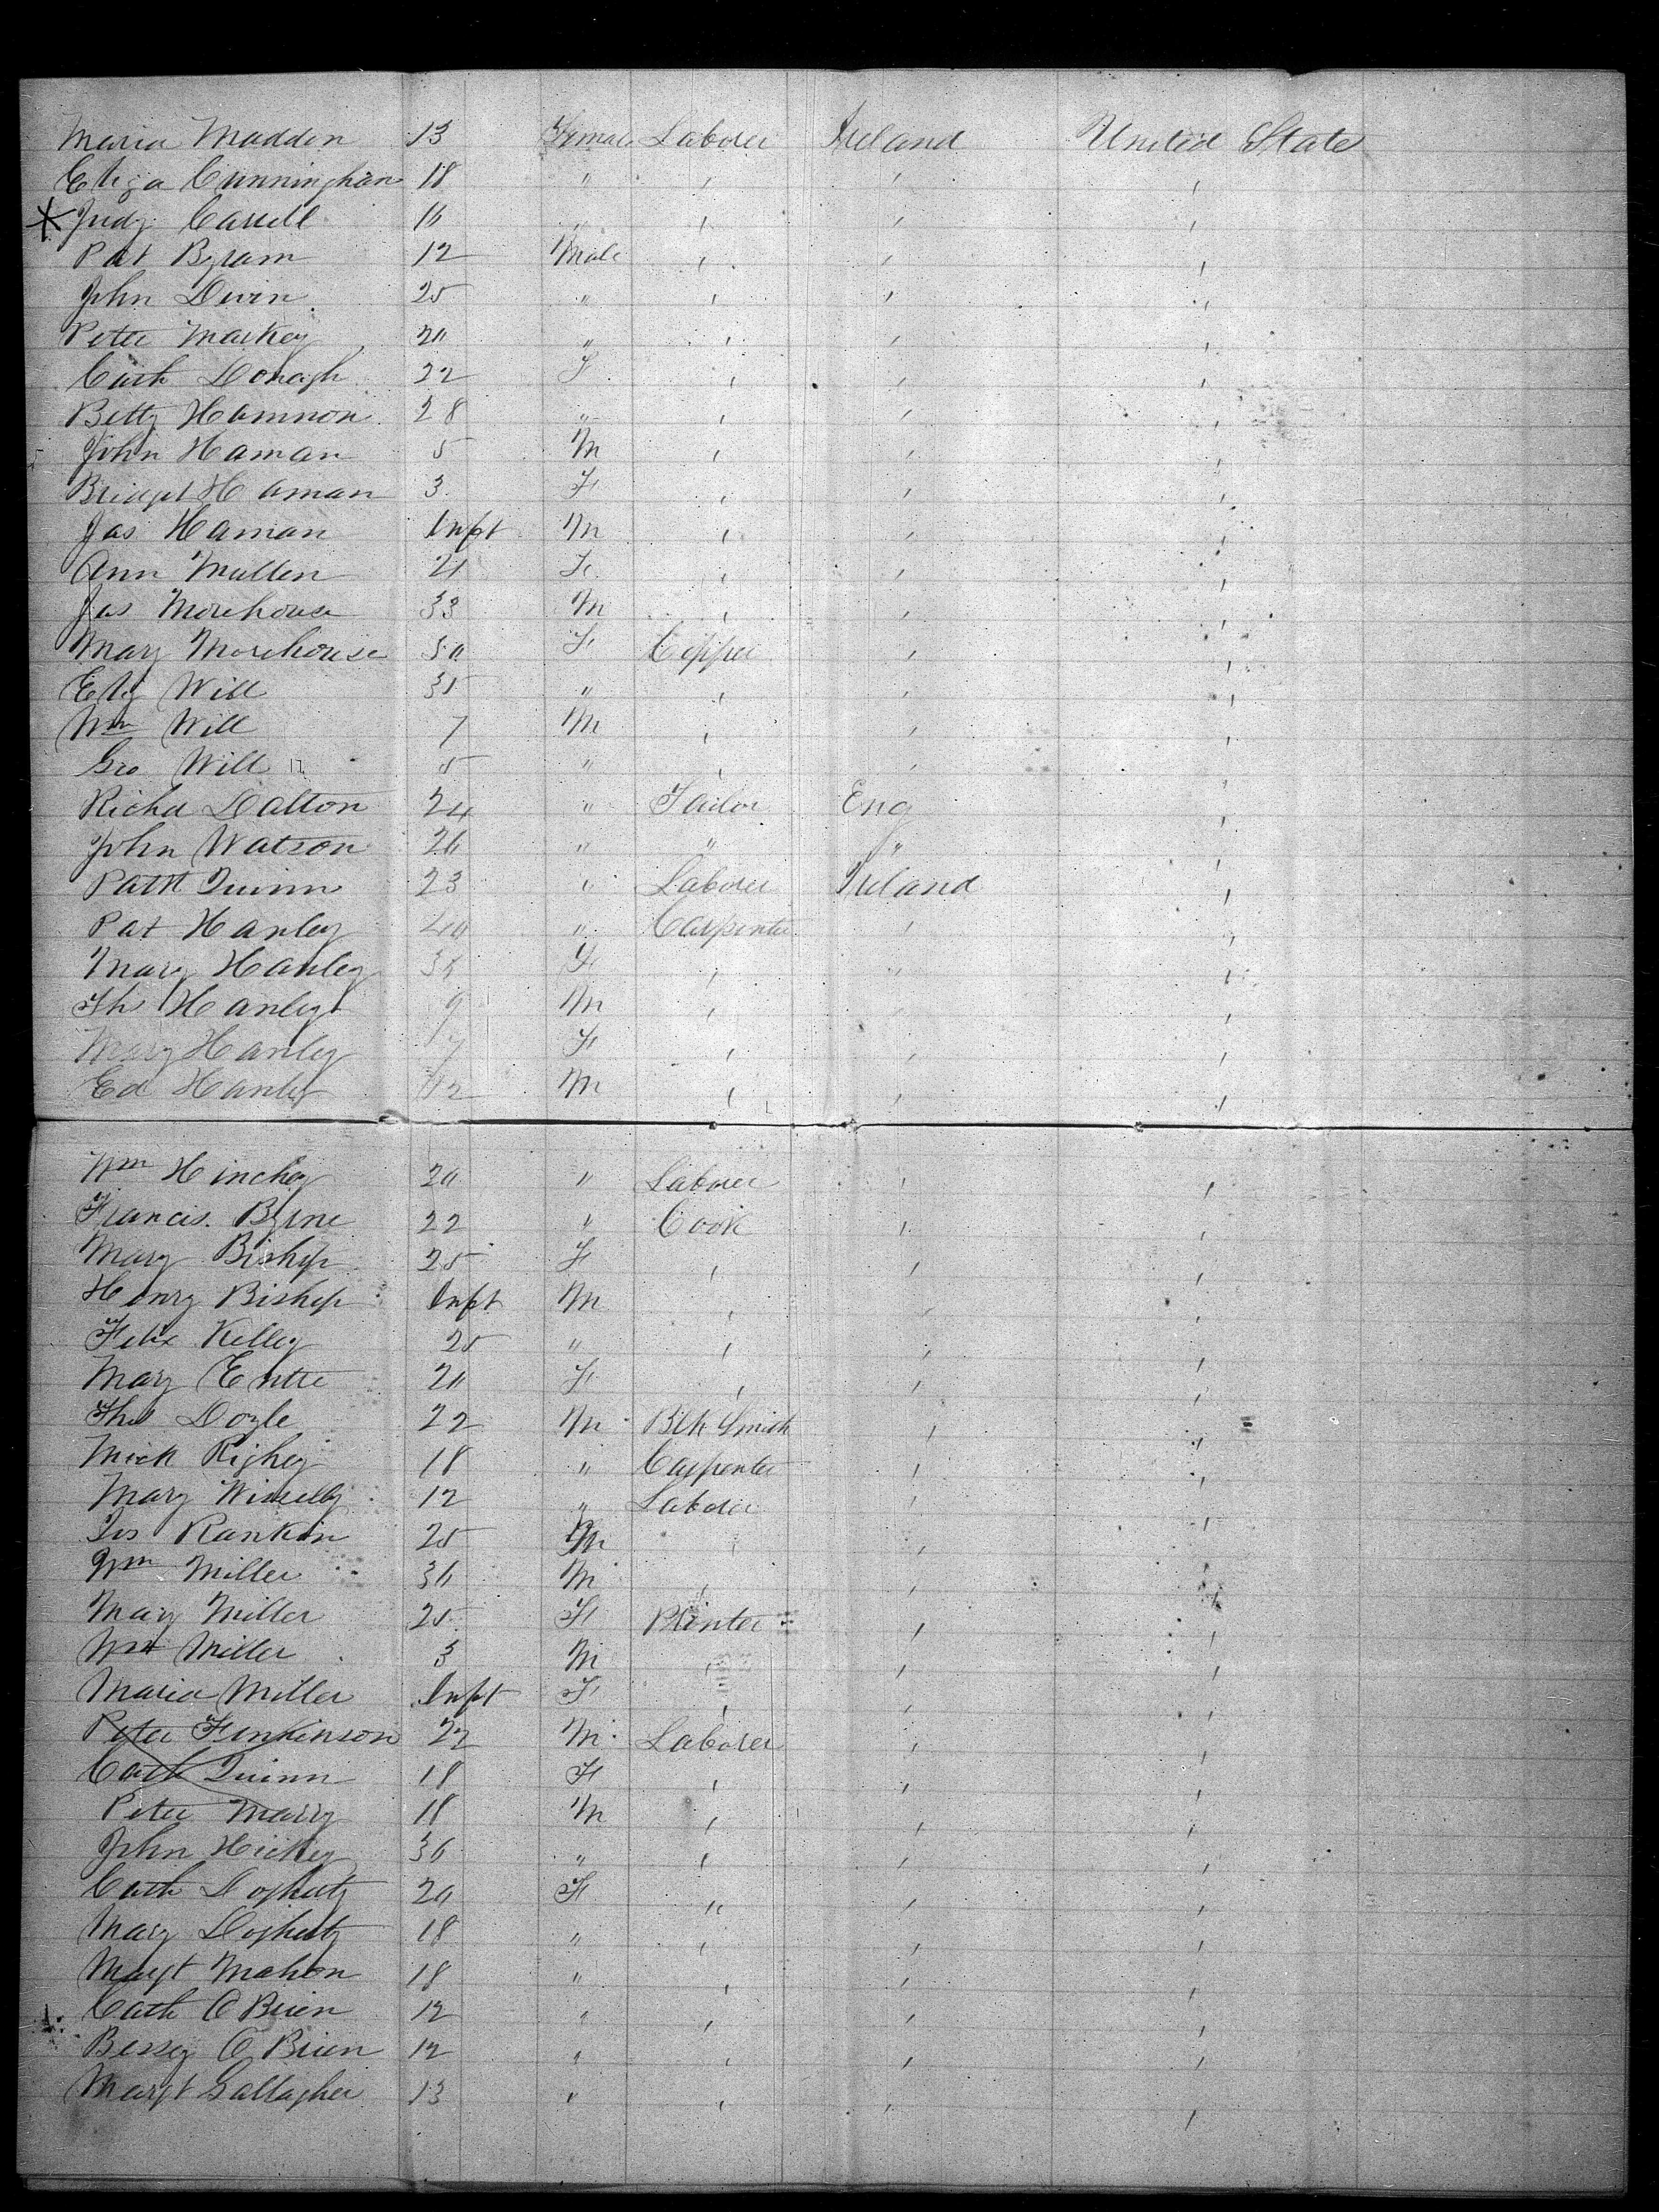 Maria Madden 13 Female Laborer Ireland United State
Eliza Cunningham 18 " " " "
Judy Carrell 16 " " " "
Pat Byram 12 Male " " "
John Devin 25 " " " "
Peter Markey 20 " " " "
Cath Donagh 22 F " " "
Betty Hamnon 28 " " " "
John Haman 5 M " " "
Bridget Haman 3 F " " "
Jas Haman Inft M " " "
Ann Mullen 21 F " " "
Jas Morehouse 33 M " " "
Mary Morehouse 30 F " "
Eliz Will 35 " " " "
Wm Will 7 M " " "
Geo Will 5 " " " "
Richd Dalton 24 " Tailor Eng "
John Watson 26 " " " "
Patk Quinn 23 " Laborer Ireland "
Pat Hanley 40 " Carpenter " "
Mary Hanley 36 F " " "
Ths Hanley 9 M " " "
Mary Hanley 7 F " " "
Ed Hanley M " " "
Wm Hinchey 20 " Laborer " "
Francis Byrne 22 " Cook " "
Mary Bishop 25 F " " "
Henry Bishop Inft M " " "
Felix Kelley 25 " " " "
Mary 20 F " " "
Ths Doyle 22 M Blk Smith " "
Mick Righey 18 " Carpenter " "
Mary 12 " Laborer " "
Jos Rankin 25 M " " "
Wm Miller 36 M " " "
Mary Miller 25 F Printer " "
Wm Miller 3 M " " "
Maria Miller Inft F " " "
Peter Fenkinson 22 M Laborer " "
Cath Quinn 18 F " " "
Peter Marry 18 M " " "
John Hickey 36 " " " "
Cath Doghuty 20 F " " "
Mary Doghuty 18 " " " "
Margt Mahon 18 " " " "
Cath O Brien 12 " " " "
Bessey O Brien 12 " " " "
Margt Gallagher 13 " " " "